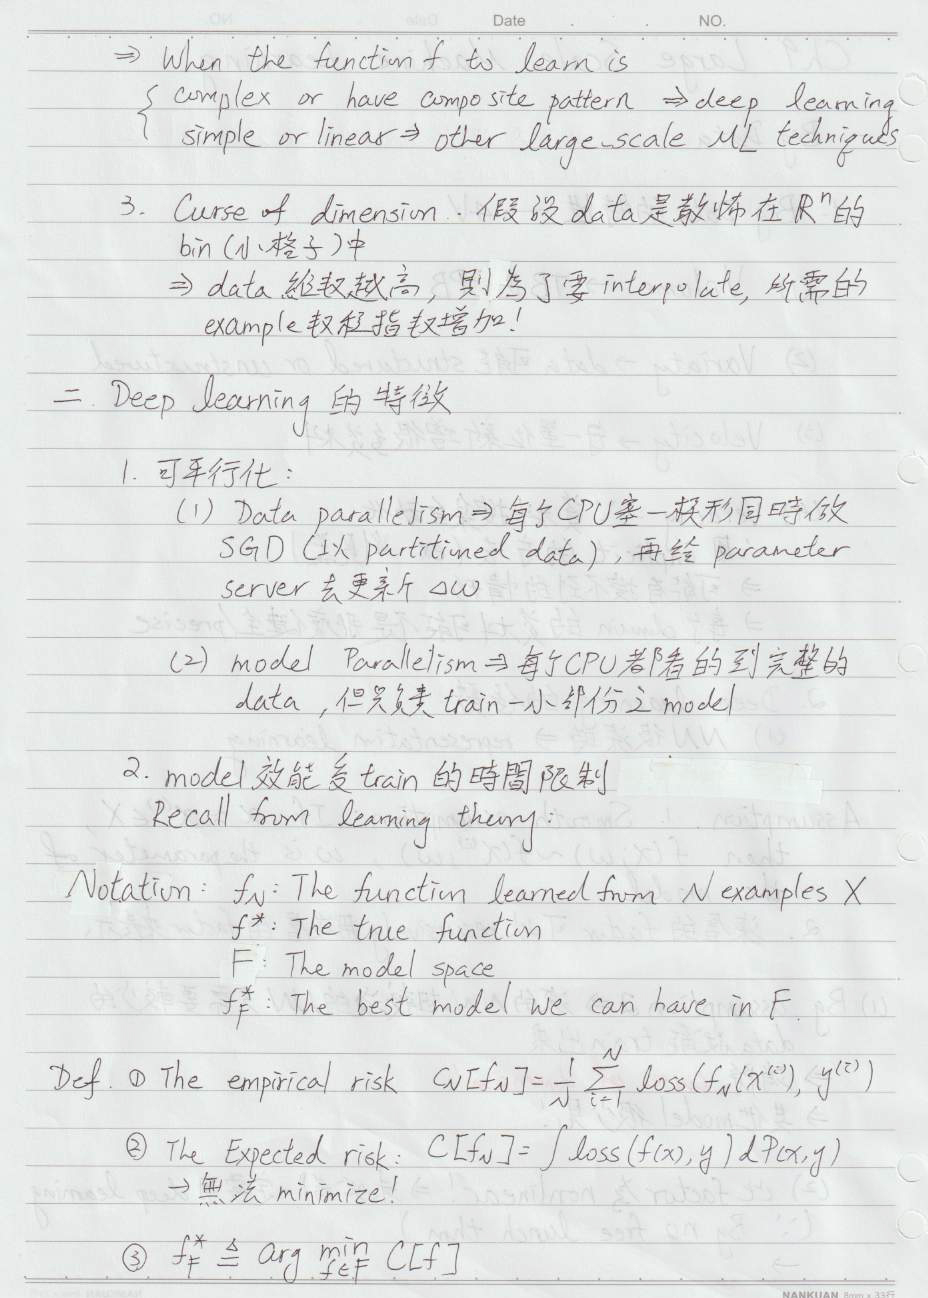 Date . . NO.
⇒ When the function f to learn is
{ complex or have composite pattern ⇒ deep learning
simple or linear ⇒ other large-scale ML techniques
3. Curse of dimension. 假設 data 是散佈在 ℝⁿ 的
bin (小格子) 中
⇒ data 維数越高, 則為了要 interpolate, 所需的
example 数程指数增加!
二. Deep learning 的 特徵
1. 可平行化:
(1) Data parallelism ⇒ 每个CPU塞一模形同時做
SGD (以 partitioned data), 再给 parameter
server 去更新 Δω
(2) model Parallelism ⇒ 每个CPU都看的到完整的
data, 但只負責 train 一小部份之 model
2. model 效能受 train 的時間限制
Recall from learning theory:
Notation: f_N: The function learned from N examples X
f*: The true function
F: The model space
f*_F: The best model we can have in F.
Def. ① The empirical risk C_N[f_N] = 1/N Σ_{i=1}^{N} loss(f_N(x^(i)), y^(i))
② The Expected risk: C[f_N] = ∫ loss(f(x), y) dP(x, y)
→ 無法 minimize!
③ f*_F ≜ arg min_{f∈F} C[f]
NANKUAN 8mm x 33行